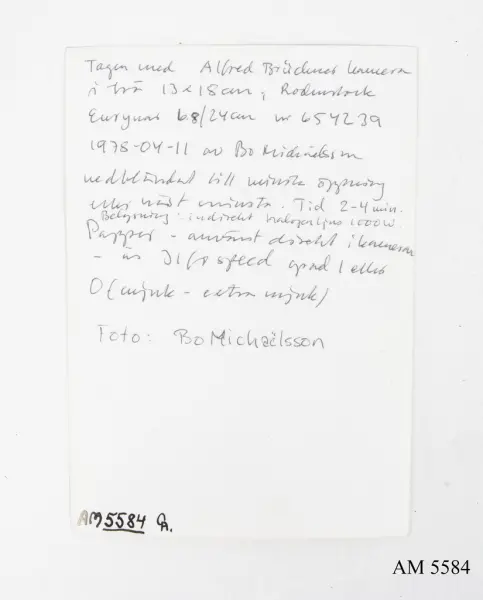 Tagen med Alfred Brückners kamera
i trä 13x18cm, Rodenstock
Eurynar 6.8/24cm nr 654239
1978-04-11 av Bo Michaëlsson
nedbländat till minsta öppning
eller näst minsta. Tid 2-4 min.
Belysning: indirekt halogenljus 1000W.
Papper - använt direkt i kameran
- är Ilfospeed grad 1 eller
0 (mjuk - extra mjuk)
Foto: Bo Michaëlsson
AM 5584
AM 5584